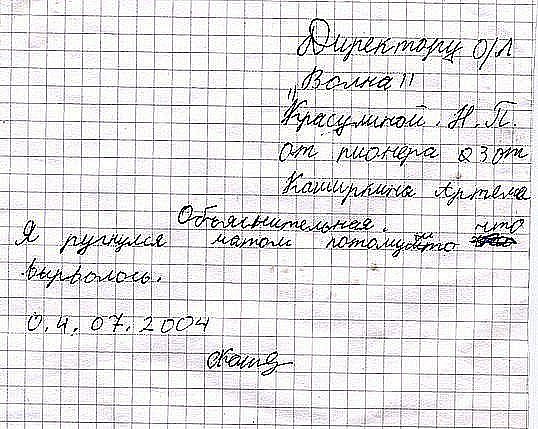 Директору О/Л
"Волна"
Красулиной. Н. П.
от пионера 23 от
Каширкина Артема
Объяснительная.
Я ругнулся матом потомушто что
вырволось.
0.4.07.2004